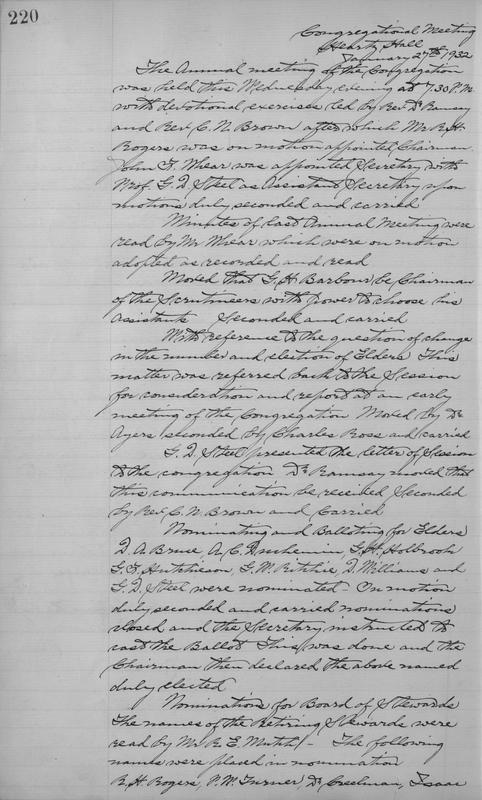 220
Congregational Meeting
Hearty Hall
January 27th 1932
The Annual meeting of the Congregation
was held this Wednesday evening at 7.30 P.M.
with devotional exercises led by Rev. Dr Ramsay
and Rev. C. N. Brown after which Mr R. H.
Rogers was on motion appointed Chairman.
John F. Whear was appointed Secretary with
Prof. G. D. Steel as Assistant Secretary upon
motions duly seconded and carried
Minutes of Last Annual Meeting were
read by Mr Whear which were on motion
adopted as recorded and read
Moved that G. H. Barbour be Chairman
of the Scrutineers with power to choose his
Assistants Seconded and carried
With reference to the question of change
in the number and election of Elders This
matter was referred back to the Session
for consideration and report at an early
meeting of the Congregation Moved by Dr
Ayers seconded by Charles Ross and carried
G. D. Steel presented the letter of Session
to the congregation Dr Ramsay moved that
this communication be received Seconded
by Rev. C. N. Brown and Carried
Nominating and Balloting for Elders
D. A. Bruce, A. C. Duchemin, G. H. Holbrook
G. F. Hutcheson, G. W. Ritchie, D. Williams and
G. D. Steel were nominated - On motion
duly seconded and carried nominations
closed and the Secretary instructed to
cast the Ballot This was done and the
Chairman then declared the above named
duly elected
Nominations for Board of Stewards
The names of the Retiring Stewards were
read by Mr R. E. Mutch - The following
names were placed in nomination
R. H. Rogers, P. W. Turner, Dr Creelman, Isaac